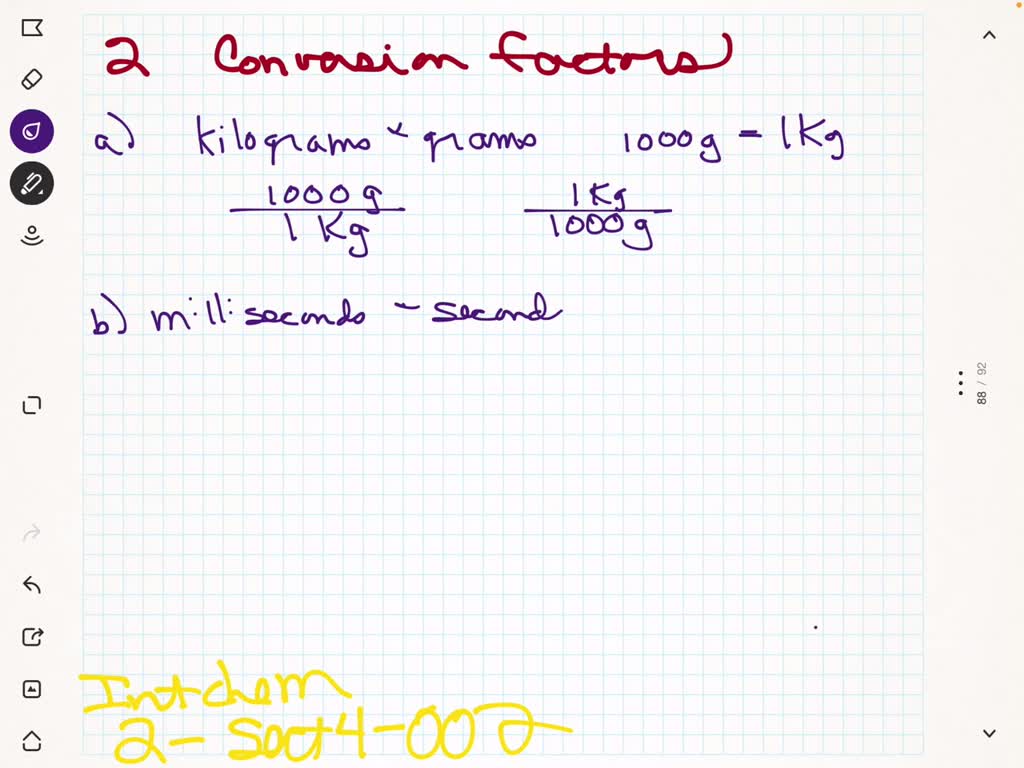 2 Conversion factors
a) kilograms & grams 1000g = 1Kg
1000 g 1 Kg
1 Kg 1000 g
b) milliseconds - second
88 / 92
Int chem
2 - Sect 4 - 002